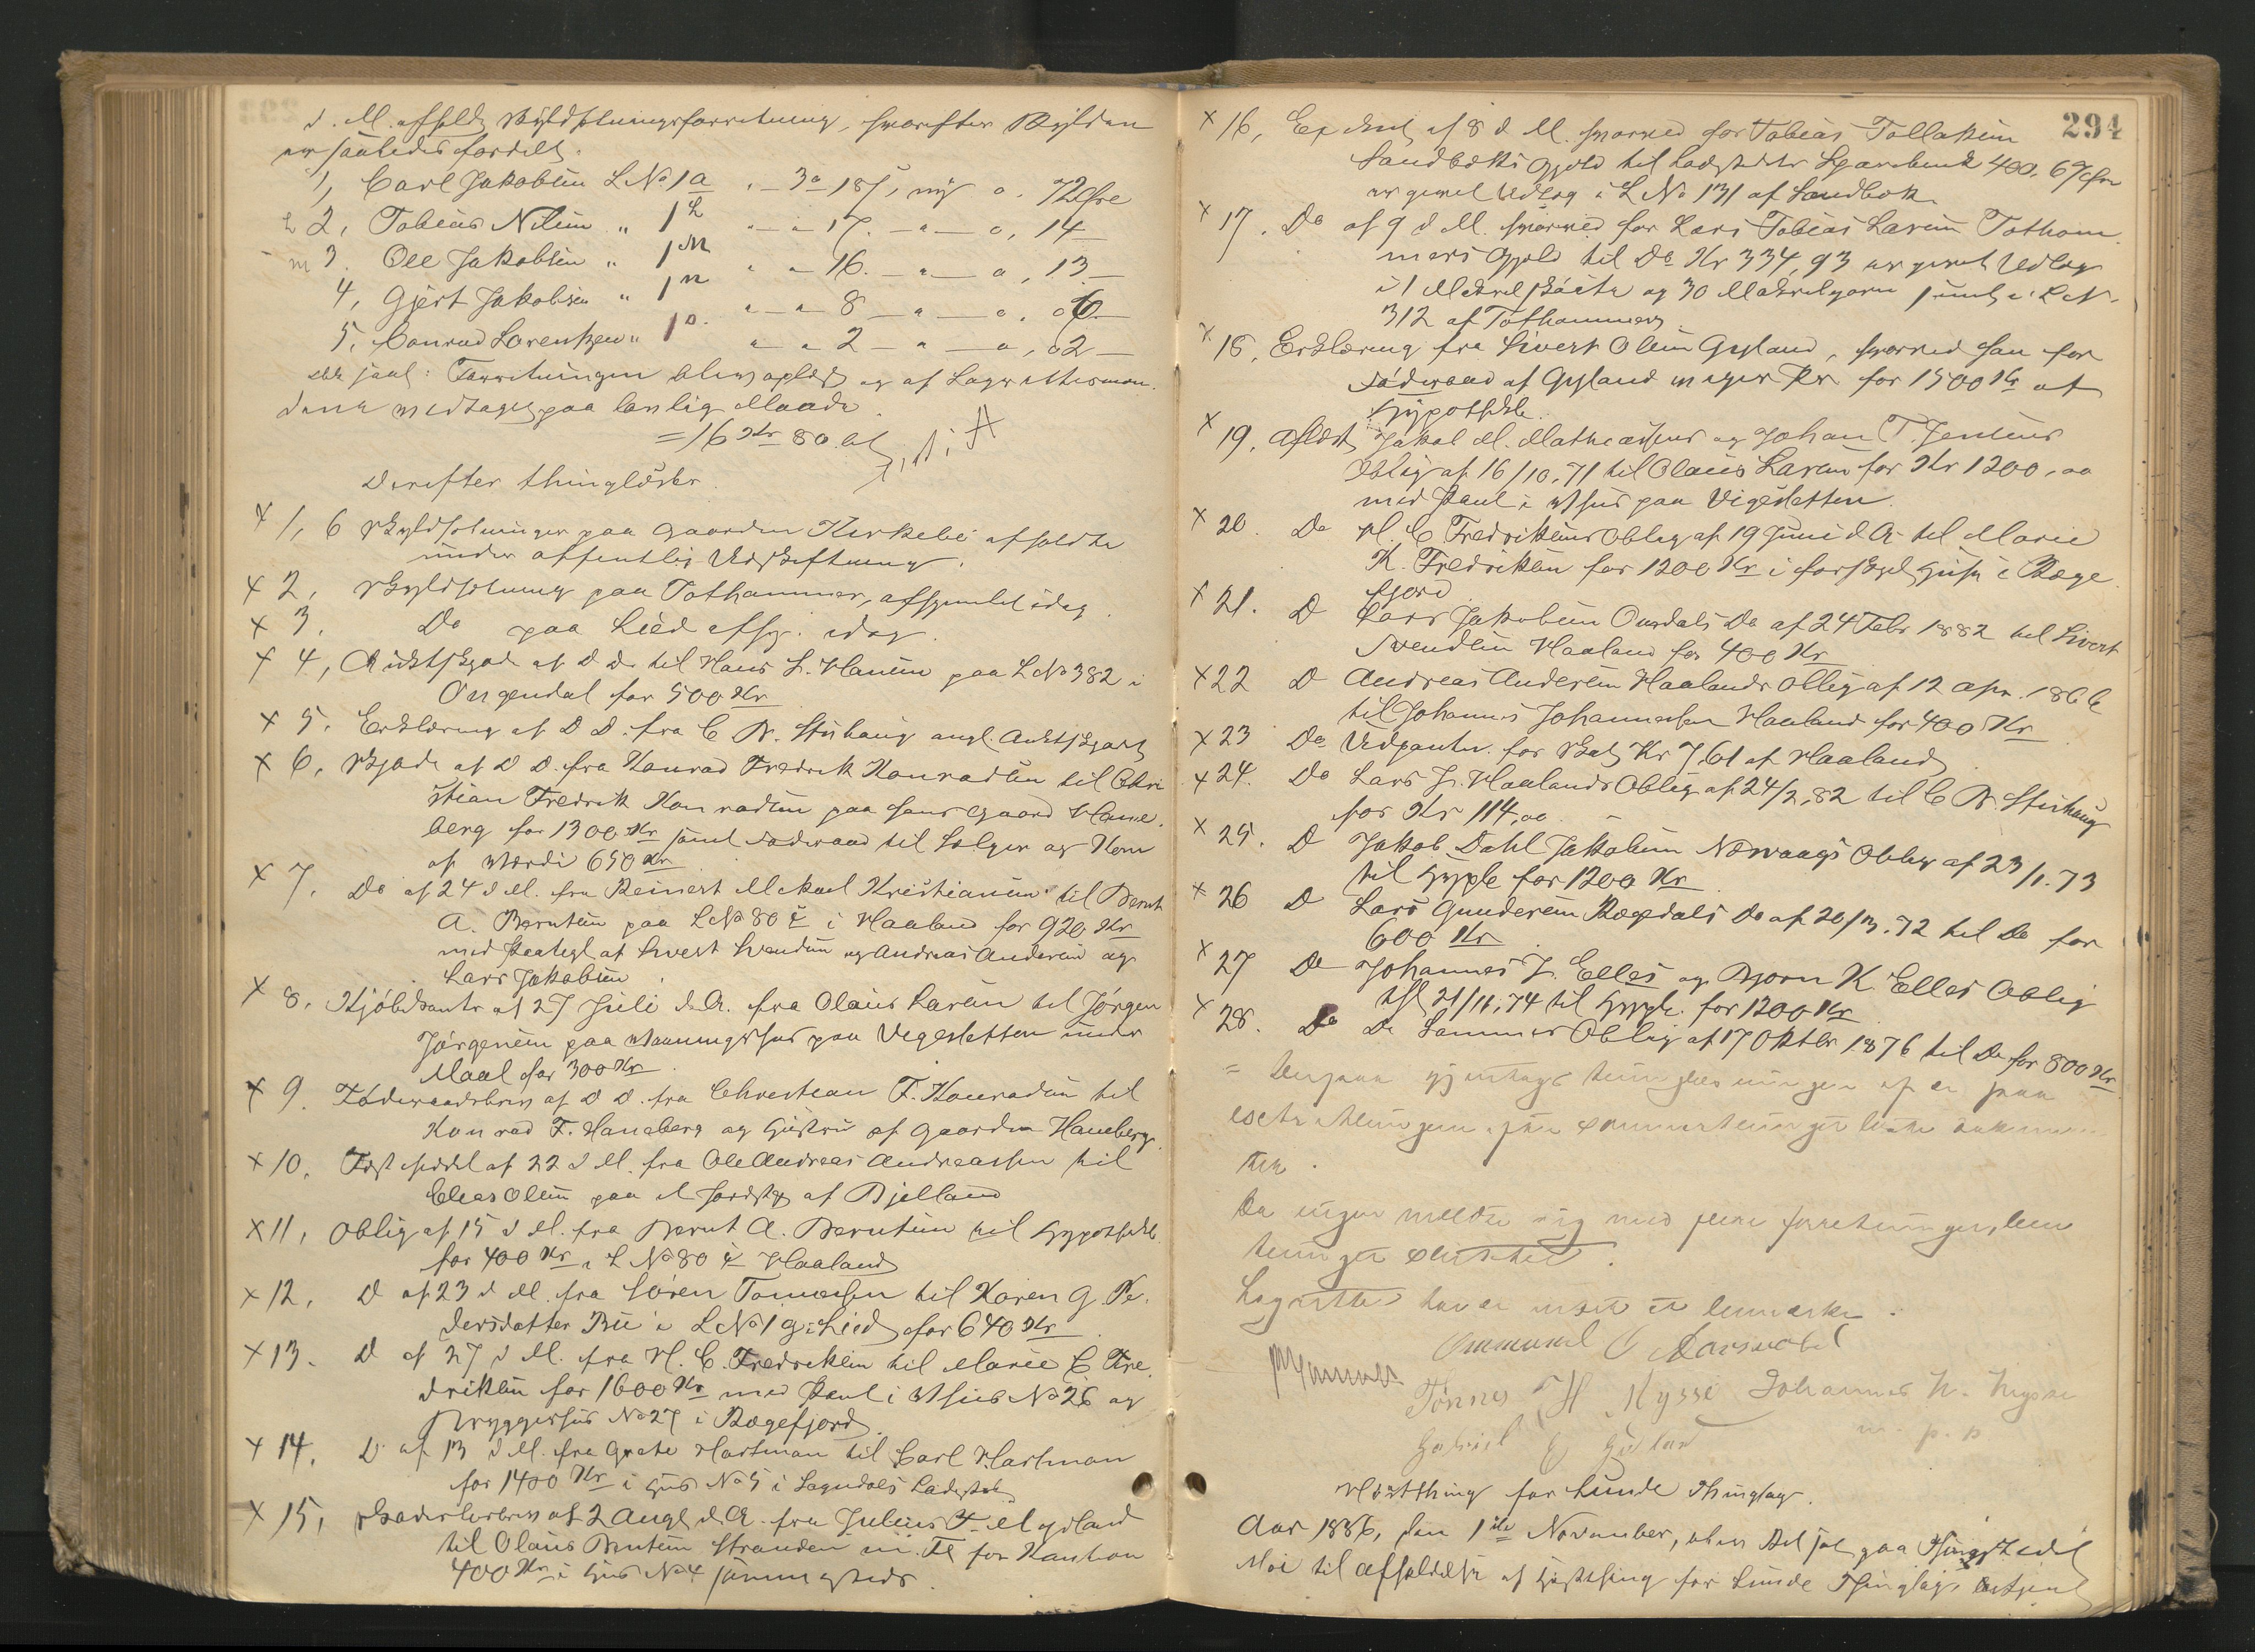 d. M. afholdt Skyldsetningsforretning, hvorefter Skylden
er saaledes fordelt.
1, Carl Jakobsen LNo 1a " – 3 a 187, ny a. 72 Øre
2, Tobias Nilsen " 1 L " – " 17. – " – a, 14 –
m 3. Ole Jakobsen " 1 m " – " 16. – " – a, 13 –
4, Gjert Jakobsen " 1 n " – " 8 – " – a. 06 –
5. Conrad Lorentzen " 1 o. " – " 2 – " – a, 02 –
Forretningen blev oplæst og af Lagrettesmæn-
dene medtaget paa lovlig Maade.
= 16 Kr 80.
Derefter thinglæstes.
x 1, 6 Skyldsetninger paa Gaarden Kirkebø afholdte
under offentlig Udskiftning.
x 2, Skyldsetning paa Tothammer, afhjemlet idag.
x 3. Do paa Lied afhj. idag.
x 4, Auktskjøde af D. D. til Hans L. Hansen paa LNo 382 i
Ougendal for 500 Kr
x 5. Erklæring af D. D. fra C. B. Stuhaug angl. Auktskjøde
x 6, Skjøde af D. D. fra Konrad Fredrik Konradsen til Chri
stian Fredrik Konradsen paa hans Gaard Hane-
berg for 1300 Kr samt Føderaad til Sælger og Kone
af Værdi 650 Kr
x 7. Do af 24 d M. fra Reinert Mikael Kristiansen til Bernt
A. Berntsen paa LNo 80 i Haaland for 920 Kr
med Paategl. af Sivert Svendsen og Andreas Andersen og
Lars Jakobsen.
x 8. Kjøbekontr af 27 Juli d. A. fra Olaus Larsen til Jørgen
Jørgensen paa Vaaningshus paa Vegesletten under
Maal for 300 Kr.
x 9. Føderaadsbrev af D. D. fra Christian F. Konradsen til
Konrad F. Haneberg og Hustru af Gaarden Haneberg.
x 10. Festeseddel af 22 d M. fra Ole Andreas Andreassen til
Elias Olsen paa et Jordstk af Bjelland
x 11, Oblig af 15 d M. fra Bernt A. Berntsen til Hypothekb.
for 400 Kr i LNo 80 Haaland
x 12, D af 23 d M. fra Søren Tomassen til Karen G. Pe-
dersdatter Bu i LNo 1 g i Lied for 640 Kr
x 13. D af 27 d M. fra H. C. Fredriksen til Marie C. Fre-
driksen for 1600 Kr med Pant i Vhus No 26 og
Bryggerhus No 27 i Rægefjord.
x 14. D. af 13 d M. fra Grete Hartman til Carl Hartman
for 1400 Kr i Hus No 5 i Sogndals Ladested
x 15, Skadesløsbrev af 2 Augt d. A. fra Julius F. Mydland
til Olaus Berntsen Stranden m. Fl for Kaution
400 Kr i Hus No 4 sammesteds.
294
x 16, Expedn af 8 d M. hvorved for Tobias Tollaksen
Sandbæks Gjæld til Ladestedets Sparebank 400,67 Øre
er gjort Udlæg i LNo 131 af Sandbæk
x 17. Do af 9 d M. hvorved for Lars Tobias Larsen Totham-
mers Gjæld til Do Kr 334,93 er gjort Udlæg
i 1 Makrelskøite og 30 Makrelgarn samt i LNo
312 af Tothammer
x 18, Erklæring fra Sivert Olsen Gyland, hvorved han for
Føderaad af Gyland viger Pr. for 1500 Kr af
Hypothekb.
x 19. Aflæst Jakob M. Mathiassens og Johan T. Jensens
Oblig af 16/10.71 til Olaus Larsen for Kr 1200,00
med Pant i Vhus paa Vigesletten.
x 20. Do H. C. Fredriksens Oblig af 19 Juni d A. til Marie
K. Fredriksen for 1200 Kr i forskjel Huse i Ræge-
fjord
x 21. D Lars Jakobsen Ousdals Do af 24 Febr 1882 til Sivert
Svendsen Haaland for 400 Kr
x 22 D Andreas Andersen Haalands Oblig af 12 Apr. 1866
til Johannes Johannessen Haaland for 400 Kr
x 23 Do Udpantn. for Skat Kr 7,61 af Haaland
x 24. Do Lars J. Haalands Oblig af 24/2,82 til C. B. Stuhaug
for Kr 114,00.
x 25. D Jakob Dahl Jakobsen Nesvaags Oblig af 23/1.73
til Hypb for 1200 Kr.
x 26 D Lars Gundersen Rægedals Do af 20/3.72 til Do for
600 Kr
x 27 Do Johannes J. Elles og Bjørn K. Elles Oblig
af 21/11,74 til Hypb. for 1200 Kr
x 28. Do De Sammes Oblig af 17 Oktbr 1876 til Do for 800 Kr
= Derpaa
Da ingen meldte sig med flere forretninger, blev
thinget sluttet.
Lagrettet havde intet at bemærke.
Tønnes H Mysse Johannes N. Mysse
m. p. p
Gabriel
Høstthing for Lunde Thinglag.
Aar 1886, den 1ste November, blev Ret sat paa Thingstedet
Moi til Afholdelse af Høstthing for Lunde Thinglag,